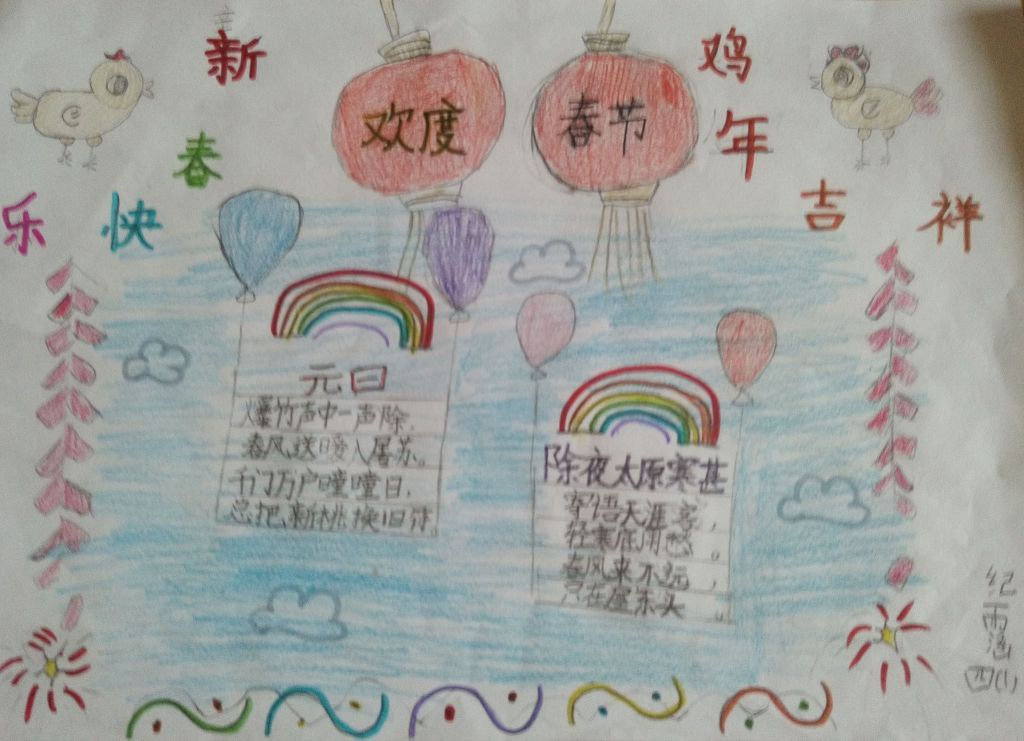 新
春
快
乐
欢度
春节
鸡
年
吉
祥
元日
爆竹声中一声除,
春风送暖入屠苏。
千门万户曈曈日,
总把新桃换旧符。
除夜太原寒甚
寄语天涯客,
轻寒底用愁。
春风来不远,
只在屋东头。
纪雨涵
四(1)